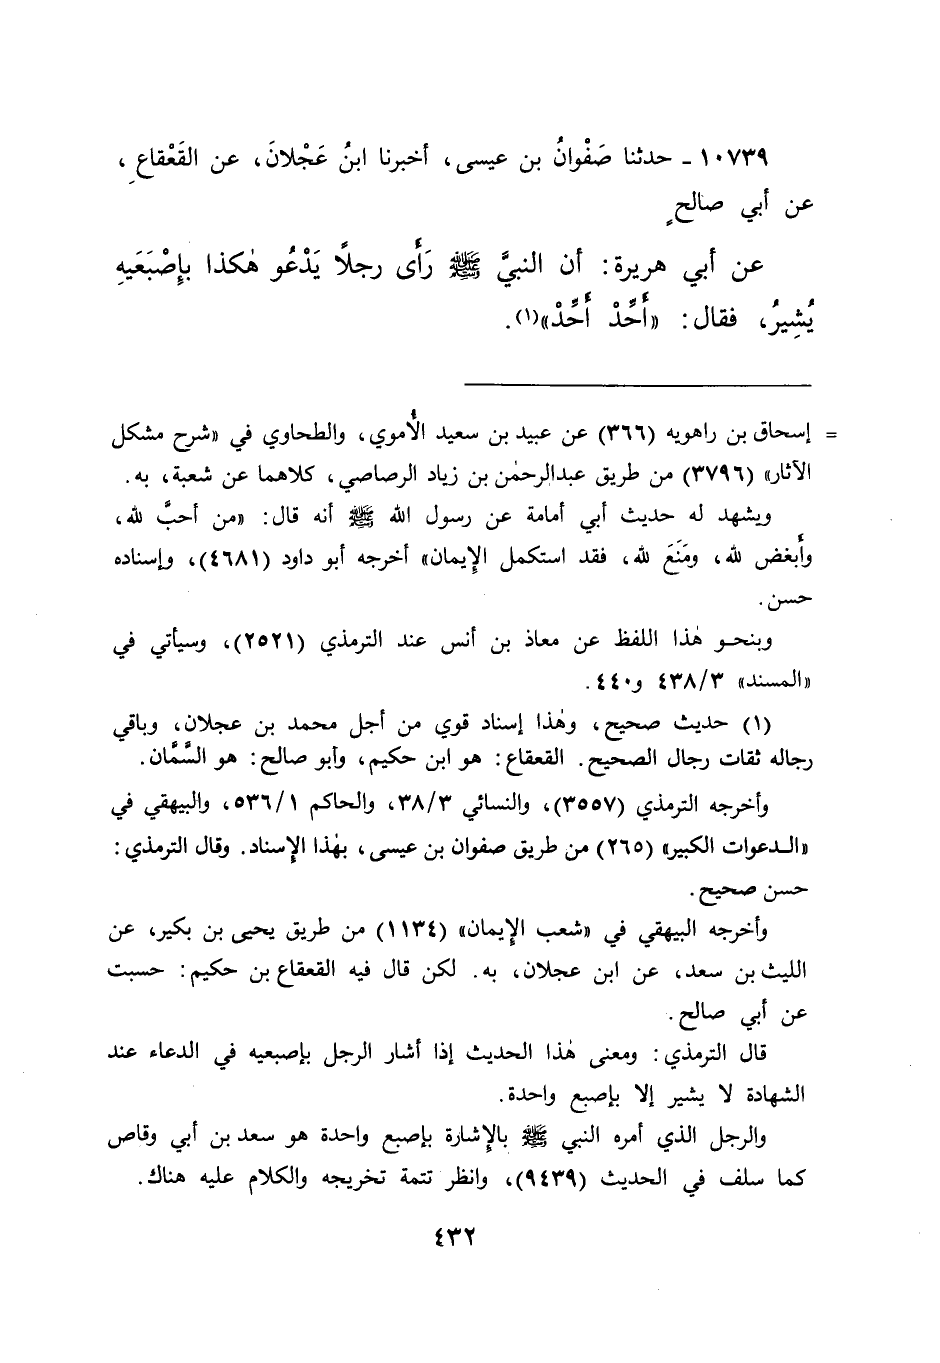 ١٠٧٣٩ - حدثنا صَفْوانُ بن عيسى، أخبرنا ابنُ عَجْلانَ، عن القَعْقاعِ،
عن أبي صالحٍ
عن أبي هريرة: أن النبيَّ ﷺ رَأَى رجلًا يَدْعُو هٰكذا بإِصْبَعَيهِ
يُشِيرُ، فقال: «أَحِّدْ أَحِّدْ»(١).
= إسحاق بن راهويه (٣٦٦) عن عبيد بن سعيد الأُموي، والطحاوي في «شرح مشكل
الآثار» (٣٧٩٦) من طريق عبدالرحمٰن بن زياد الرصاصي، كلاهما عن شعبة، به.
ويشهد له حديث أبي أمامة عن رسول الله ﷺ أنه قال: «من أحبَّ لله،
وأَبغض لله، ومَنَعَ لله، فقد استكمل الإيمان» أخرجه أبو داود (٤٦٨١)، وإسناده
حسن.
وبنحو هٰذا اللفظ عن معاذ بن أنس عند الترمذي (٢٥٢١)، وسيأتي في
«المسند» ٤٣٨/٣ و٤٤٠.
(١) حديث صحيح، وهٰذا إسناد قوي من أجل محمد بن عجلان، وباقي
رجاله ثقات رجال الصحيح. القعقاع: هو ابن حكيم، وأبو صالح: هو السَّمَّان.
وأخرجه الترمذي (٣٥٥٧)، والنسائي ٣٨/٣، والحاكم ٥٣٦/١، والبيهقي في
«الدعوات الكبير» (٢٦٥) من طريق صفوان بن عيسى، بهٰذا الإسناد. وقال الترمذي:
حسن صحيح.
وأخرجه البيهقي في «شعب الإيمان» (١١٣٤) من طريق يحيى بن بكير، عن
الليث بن سعد، عن ابن عجلان، به. لكن قال فيه القعقاع بن حكيم: حسبت
عن أبي صالح.
قال الترمذي: ومعنى هٰذا الحديث إذا أشار الرجل بإصبعيه في الدعاء عند
الشهادة لا يشير إلا بإصبع واحدة.
والرجل الذي أمره النبي ﷺ بالإشارة بإصبع واحدة هو سعد بن أبي وقاص
كما سلف في الحديث (٩٤٣٩)، وانظر تتمة تخريجه والكلام عليه هناك.
٤٣٢